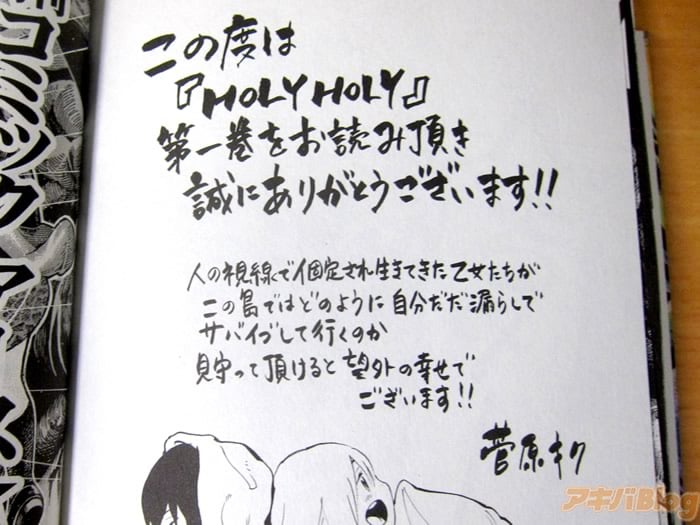 この度は
『HOLY HOLY』
第一巻をお読み頂き
誠にありがとうございます!!
人の視線で固定され生きてきた乙女たちが
この島ではどのように自分だだ漏らしで
サバイブして行くのか
見守って頂けると望外の幸せで
ございます!!
菅原キク
コミックアース
アキバBlog